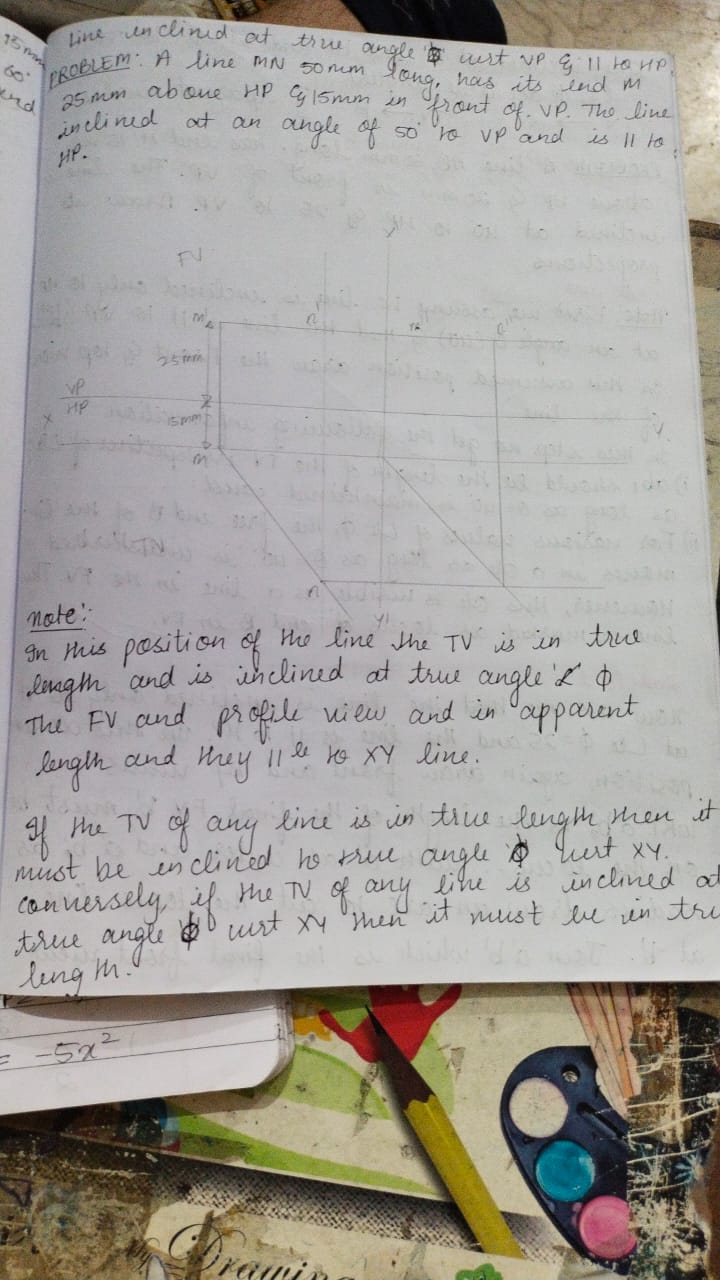 15mm
60°
end
line inclined at true angle ϕ wrt VP & 11 to HP.
PROBLEM: A line MN 50mm long, has its end M
25mm above HP & 15mm in front of VP. The line
inclined at an angle of 50° to VP and is 11 to
HP.
FV
Y
m'
n'
n"
25mm
VP
HP
X
15mm
m
n
Y1
note:
In this position of the line the TV is in true
length and is inclined at true angle ∠ ϕ
The FV and profile view and in apparent
length and they 11 le to XY line.
If the TV of any line is in true length then it
must be enclined to true angle ϕ wrt XY.
conversely if the TV of any line is inclined at
true angle ϕ wrt XY then it must be in tru
length.
= -5x²
My Drawing